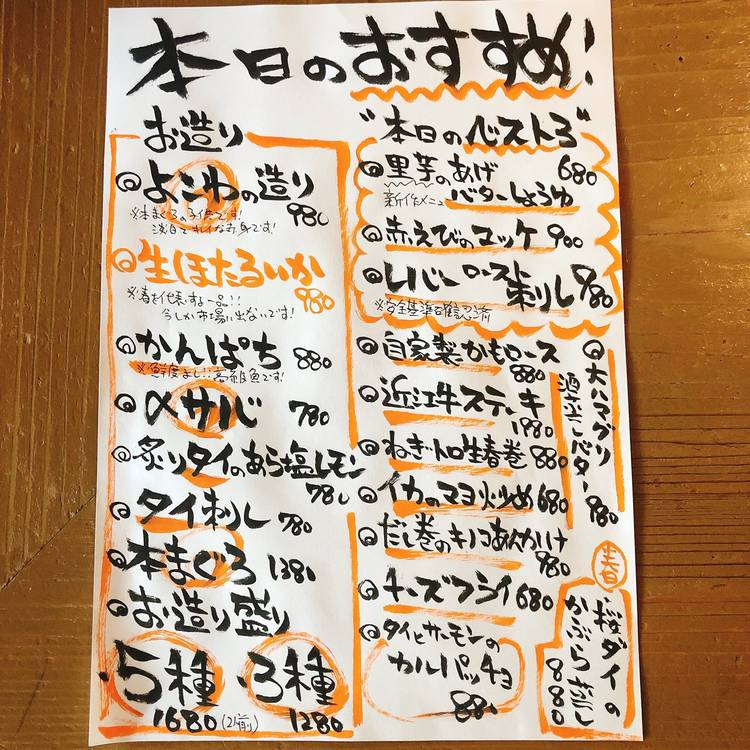 本日のおすすめ!
お造り
◎よこわの造り
980
※本まぐろの子供です!
淡白でキレイなお身です!
◎生ほたるいか
980
※春を代表する一品!!
今しか市場に出ないです!
◎かんぱち 880
※鮮度よし!!高級魚です!
◎〆サバ 780
◎炙りタイのあら塩レモン
780
◎タイ刺し 780
◎本まぐろ 1380
◎お造り盛り
・5種 ・3種
1680(2人前) 1280
"本日のベスト3"
◎里芋のあげ 680
新作メニュ バターしょうゆ
◎赤えびのユッケ 900
◎レバーロースト刺し 980
※安全基準確認済
◎自家製かもロース
880
◎近江牛ステーキ
1980
◎ねぎトロ生春巻 880
◎イカのマヨ炒め 680
◎だし巻のキノコあんかけ
980
◎チーズフライ 680
◎タイとサーモンの
カルパッチョ
880
◎大ハマグリ
酒蒸しバター 980
桜ダイの
かぶら蒸し
880